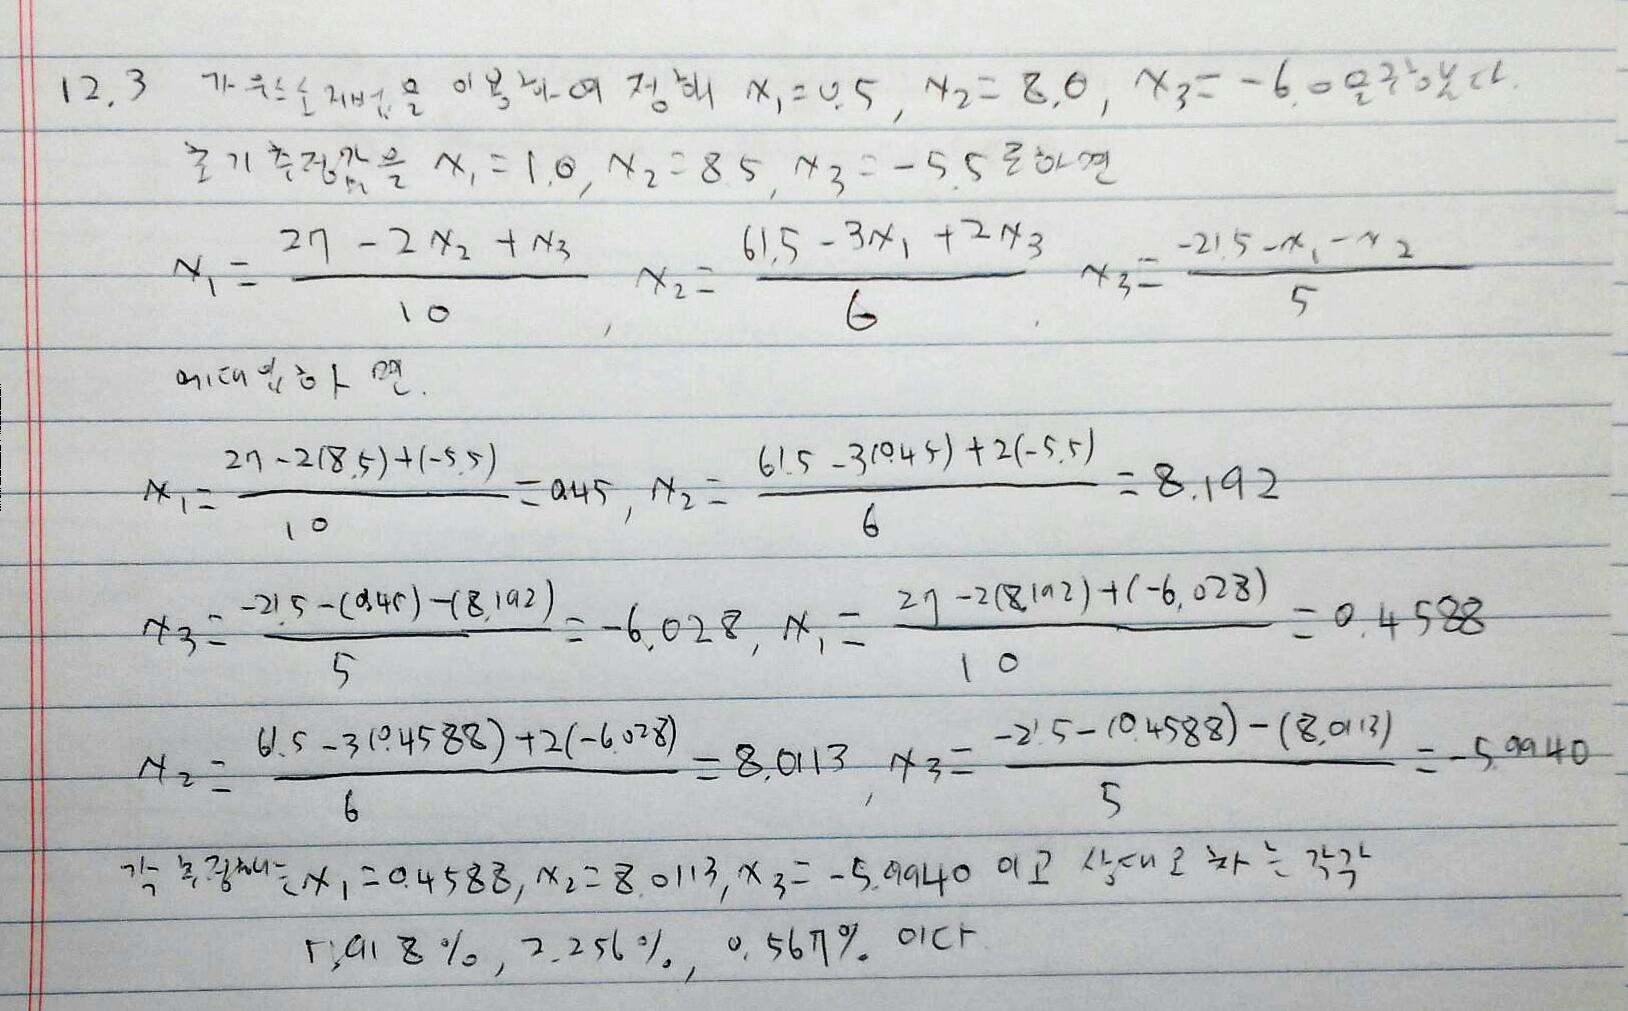 12.3 가우스소거법을 이용하여 정해 x₁=0.5, x₂=8.0, x₃=-6.0을 구하였다.
초기 추정값을 x₁=1.0, x₂=8.5, x₃=-5.5로 하면
x₁ = (27 - 2x₂ + x₃)/10, x₂ = (61.5 - 3x₁ + 2x₃)/6, x₃ = (-21.5 - x₁ - x₂)/5
에 대입하면.
x₁ = (27 - 2(8.5) + (-5.5))/10 = 0.45, x₂ = (61.5 - 3(0.45) + 2(-5.5))/6 = 8.192
x₃ = (-21.5 - (0.45) - (8.192))/5 = -6.028, x₁ = (27 - 2(8.192) + (-6.028))/10 = 0.4588
x₂ = (61.5 - 3(0.4588) + 2(-6.028))/6 = 8.0113, x₃ = (-21.5 - (0.4588) - (8.0113))/5 = -5.9940
각 x₁=0.4588, x₂=8.0113, x₃=-5.9940 이고 상대오차는 각각
2.256%, 0.567% 이다